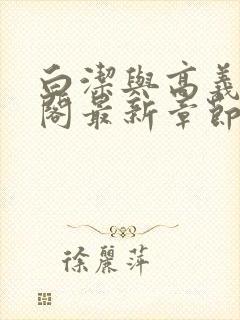 白潔與高義
閣最新章節
徐麗萍